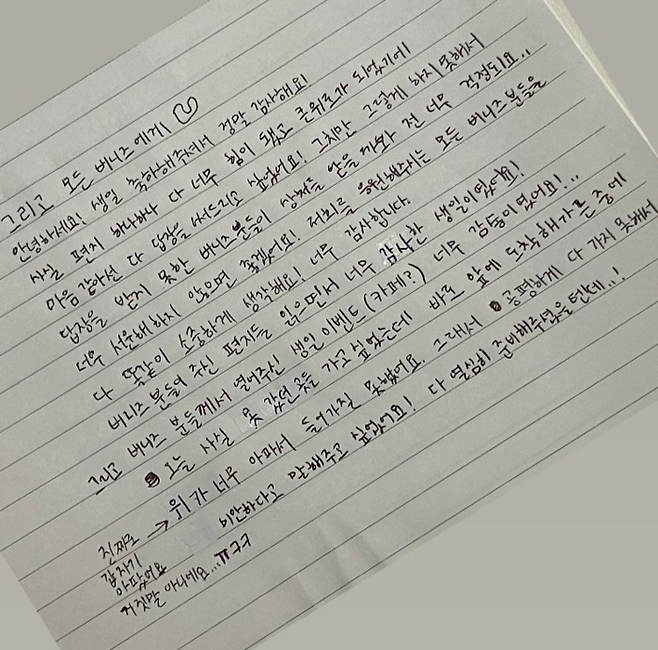 그리고 모든 버니즈에게!
안녕하세요! 생일 축하해주셔서 정말 감사해요!
사실 편지 하나하나 다 너무 힘이 됐고 큰위로가 되었기에
마음같아선 다 답장을 써드리고 싶었어요! 그치만 그렇게 하지 못해서
답장을 받지 못한 버니즈분들이 상처를 받을까봐 전 너무 걱정되요..
너무 서운해하지 않으면 좋겠어요! 저희를 응원해주시는 모든 버니즈분들을
다 똑같이 소중하게 생각해요! 너무 감사합니다.
버니즈분들이 주신 편지들을 읽으면서 너무 감사한 생일이었어요!
그리고 버니즈 분들께서 열어주신 생일 이벤트(카페?) 너무 감동이었어요!..
오늘 사실 못 갔던 곳들 가고싶었는데 바로 앞에 도착해가는 중에
→ 위가 너무 아파서 들어가질 못했어요. 그래서 공평하게 다 가지 못해서
미안하다고 말해주고 싶었어요! 다 열심히 준비해주셨을텐데..!
진짜로
갑자기
아팠어요
거짓말 아니에요...ㅠㅋㅋ